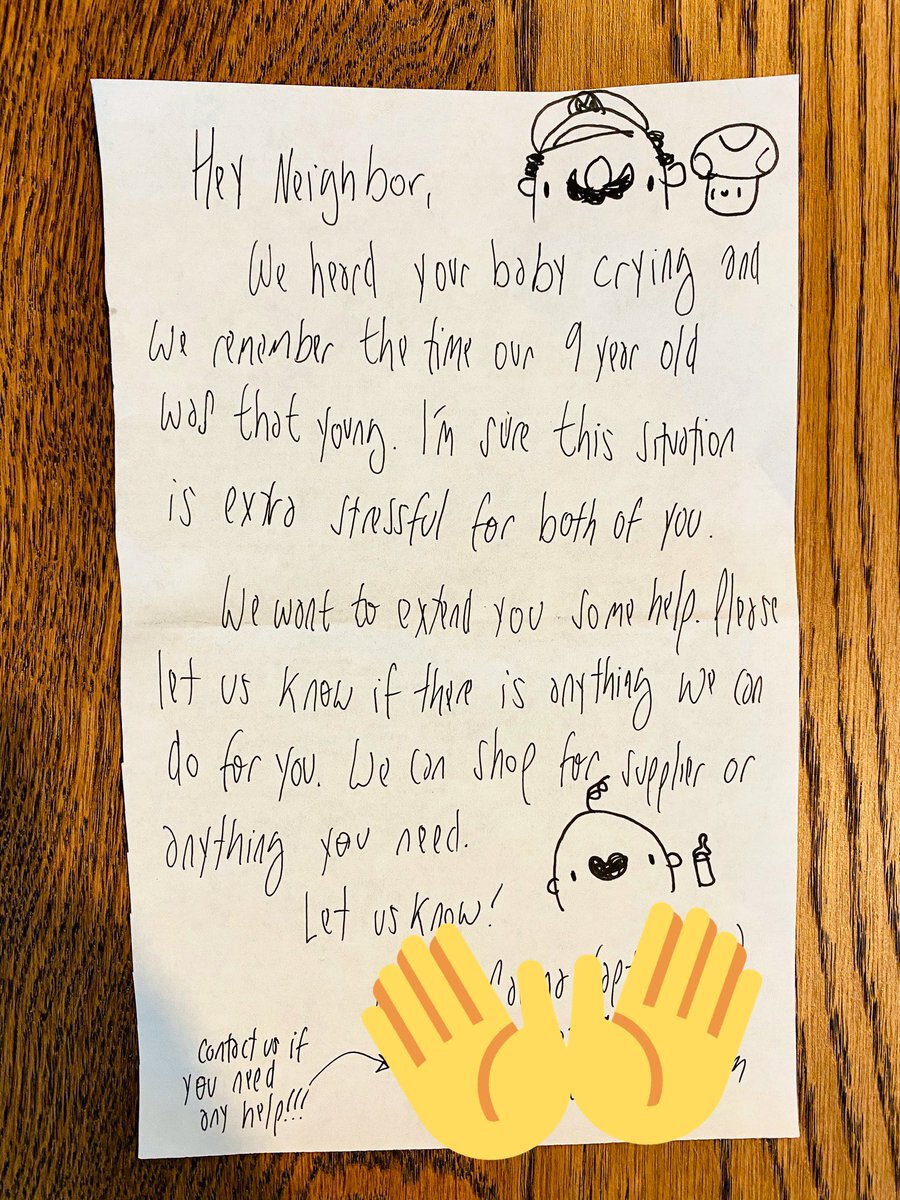 Hey Neighbor,
We heard your baby crying and
we remember the time our 9 year old
was that young. I'm sure this situation
is extra stressful for both of you.
We want to extend you some help. Please
let us know if there is anything we can
do for you. We can shop for supplier or
anything you need.
Let us know!
contact us if
you need
any help!!!